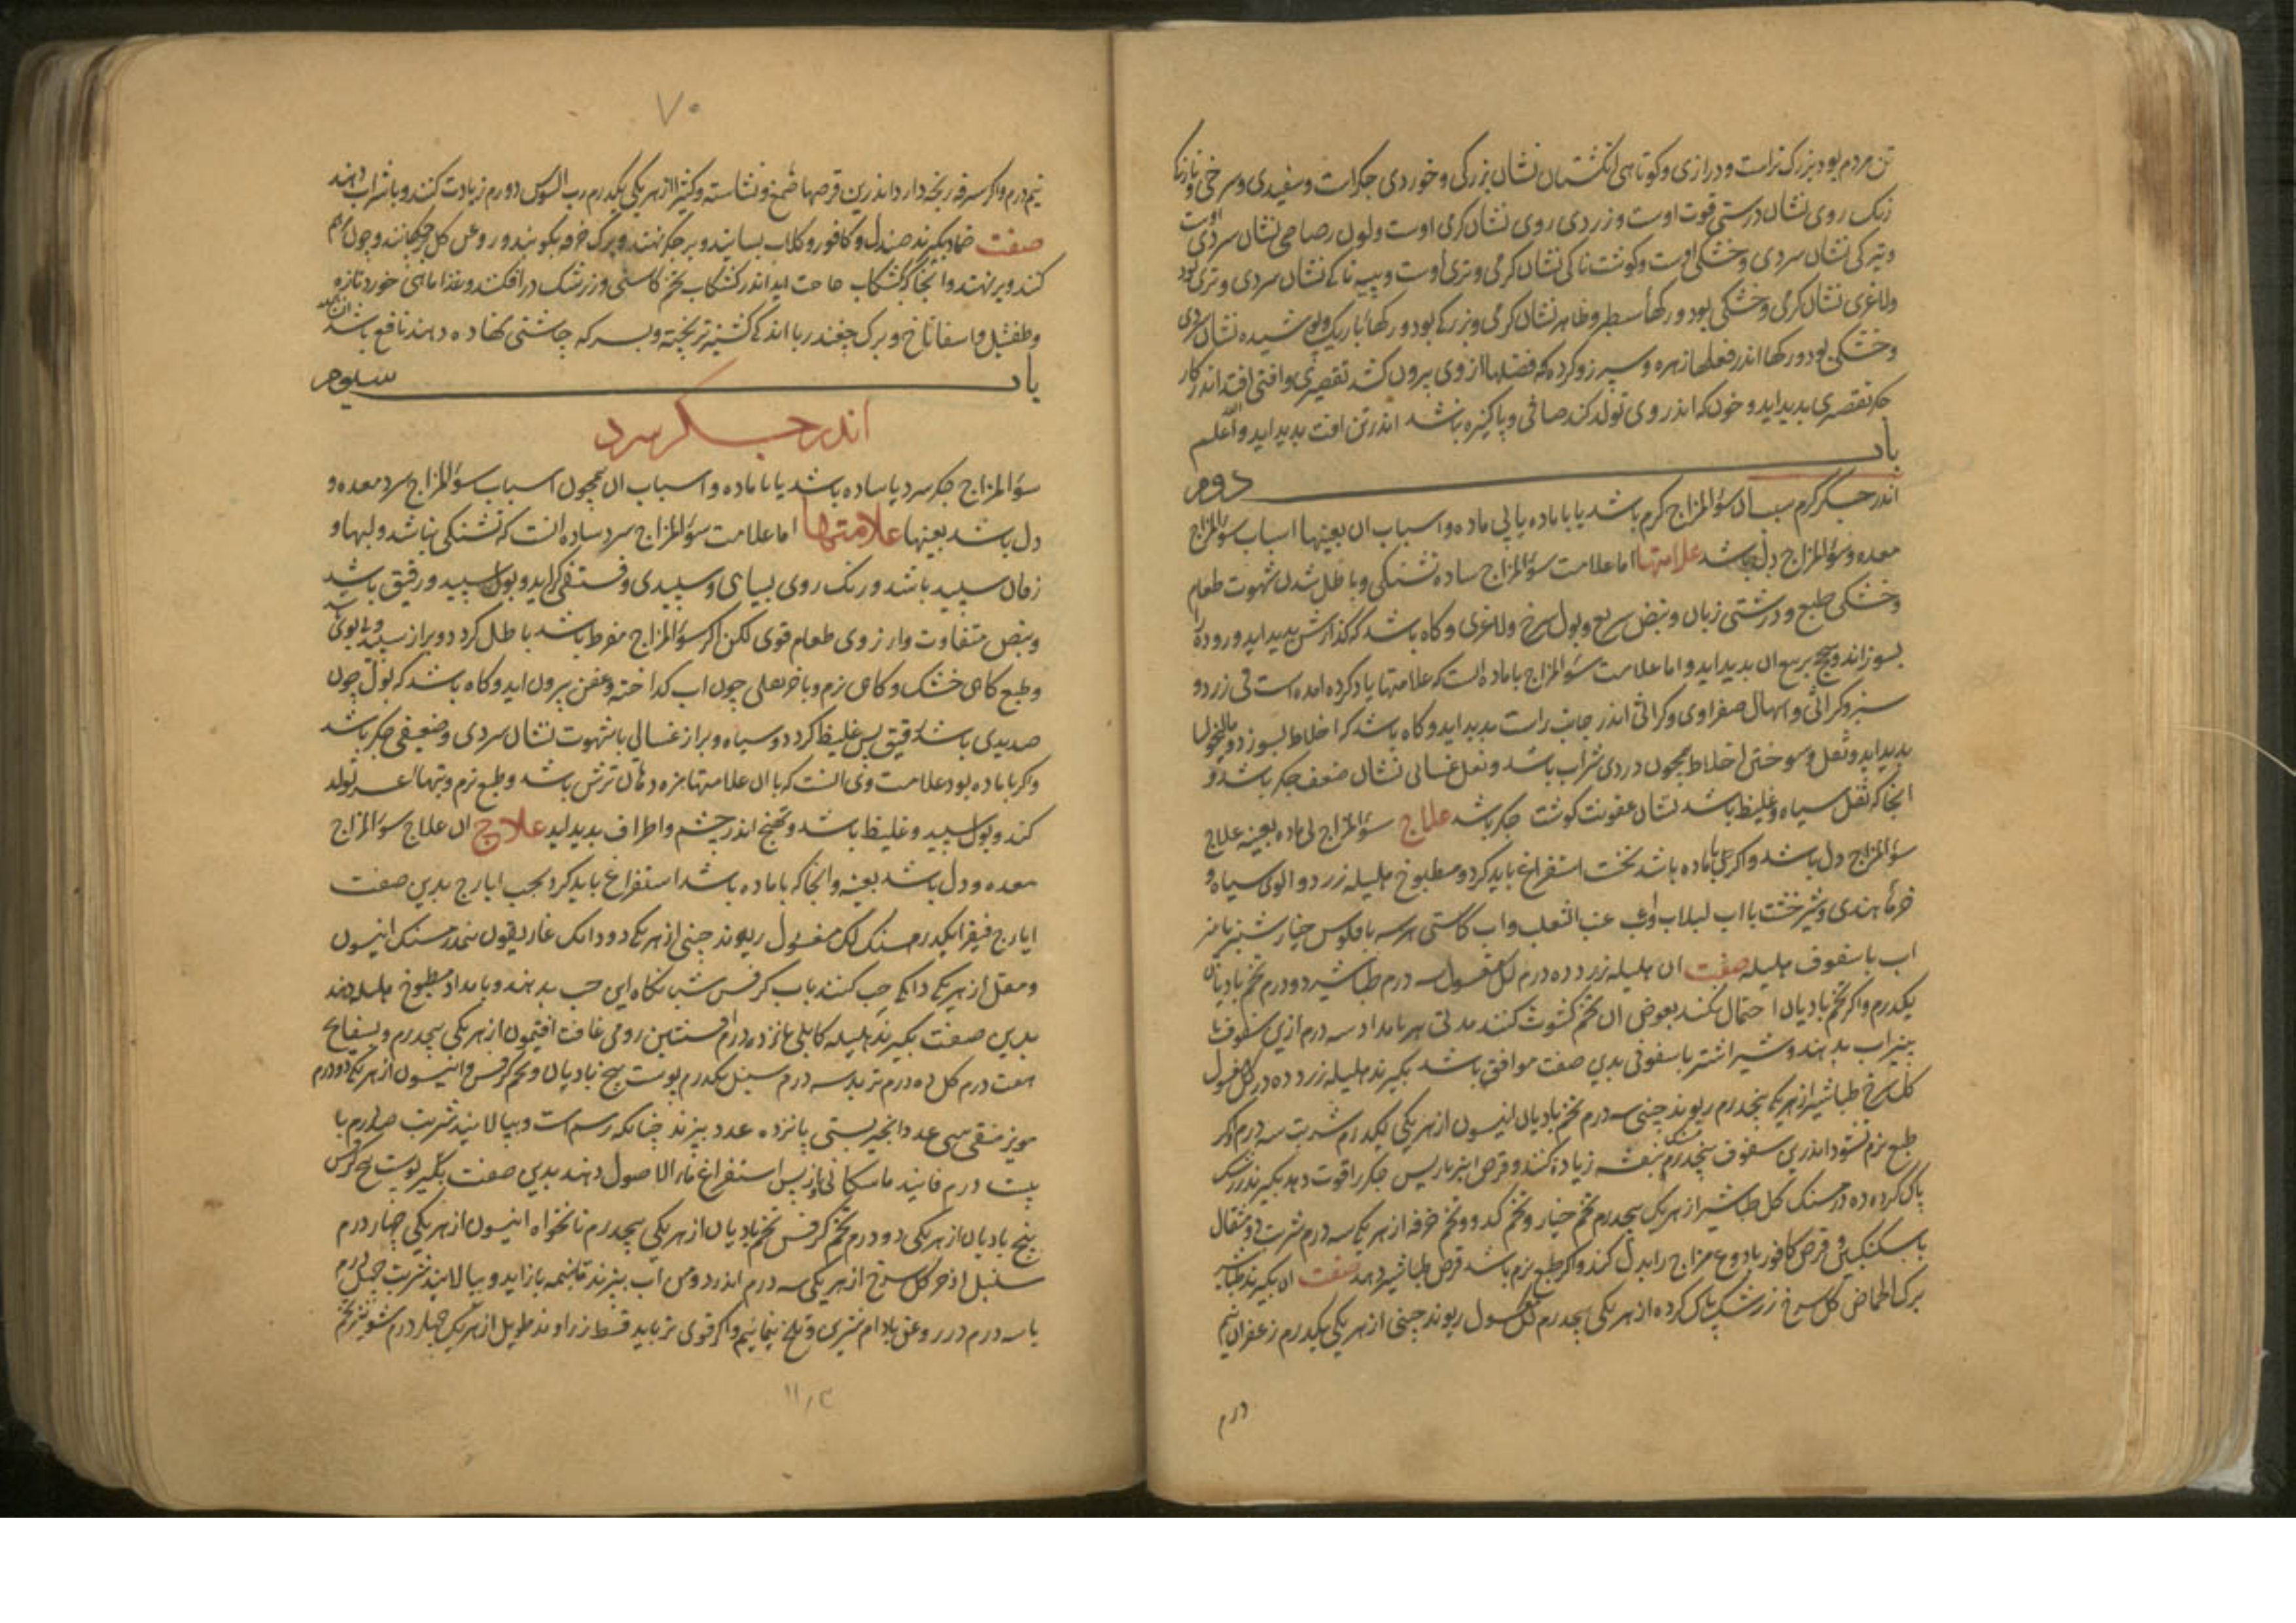 تن مردم بود بزرک تراست و درازی و کوتاهی انکشتان نشان بزرکی و خوردی جکراست و سفیدی و سرخی و تازکی
رنک روی نشان درستی قوت اوست و زردی روی نشان کرمی اوست ولون رصاصی نشان سردی اوست
و تیرکی نشان سردی و خشکی اوست و کوشت ناکی نشان کرمی و تری اوست و پیه ناکی نشان سردی و تری بود
ولاغری نشان کرمی و خشکی بود و رکهاء سطبر و ظاهر نشان کرمی و بزرکی بود و رکهاء باریک و پوشیده نشان سردی
و خشکی بود و رکها اندر فعلها زهره و سپرز و کرده که فضلها از وی بیرون کشد تقصیری و افتی افتد اندر کار
جکر تقصیری پدید اید و خون که اندر وی تولد کند صافی و پاکیزه نباشد اندر تن افت پدید اید والله اعلم
باب دوم
اندر جکر کرم سبب ان سؤالمزاج کرم باشد یا با ماده یا بی ماده و اسباب ان بعینها اسباب سؤالمزاج
معده و سؤالمزاج دل باشد علامتها اما علامت سؤالمزاج ساده تشنکی و باطل شدن شهوت طعام
و خشکی طبع و درشتی زبان و نبض سریع و بول سرخ ولاغری و کاه باشد که کدازش پدید اید و روده را
بسوزاند و سحج بر پی ان پدید اید و اما علامت سؤالمزاج با ماده انست که علامتها یاد کرده امده است قی زرد و
سبز و کراثی و اسهال صفراوی و کرانی اندر جانب راست پدید اید و کاه باشد که اخلاط بسوزد و مالیخولیا
پدید اید و ثفل و سوختن اخلاط همچون دردی شراب باشد و ثفل غسالی نشان ضعف جکر باشد و
انجا که ثفل سیاه و غلیظ باشد نشان عفونت کوشت جکر باشد علاج سؤالمزاج بی ماده بعینه علاج
سؤالمزاج دل باشد و اکر با ماده باشد نخست استفراغ باید کرد و مطبوخ هلیله زرد و الوی سیاه و
خرماء هندی و شیرخشت با اب لبلاب و اب عنب الثعلب و اب کاسنی هر سه با فلوس خیارشنبر یا پنیر
اب با سفوف هلیله صفت ان هلیله زرد ده درم لک مغسول سه درم طباشیر دو درم تخم بادیان
یکدرم و اکر تخم بادیان احتمال نکند بعوض ان تخم کشوث کنند مدتی هر بامداد سه درم ازین سفوف با
پنیر اب بدهند و شیر اشتر با سفوفی بدین صفت موافق باشد بکیرند هلیله زرد ده درم لک مغسول
کل سرخ طباشیر از هر یکی پنجدرم ریوند چینی سه درم تخم بادیان انیسون از هر یکی یکدرم شربت سه درم و اکر
طبع نرم نشود اندرین سفوف پنجدرم بنفشه زیادة کنند و قرص انبرباریس جکر را قوت دهد بکیرند زرشک
پاک کرده ده درمسنک کل طباشیر از هر یک پنجدرم تخم خیار و تخم کدو و تخم خرفه از هر یک سه درم شربت دو مثقال
با سکنکبین و قرص کافور با دوغ مزاج را بدل کند و اکر طبع نرم باشد قرص طباشیر دهند صفت ان بکیرند طباشیر
برک الحماض کل سرخ زرشک پاک کرده از هر یکی پنجدرم لک مغسول ریوند چینی از هر یکی یکدرم زعفران نیم
درم
۷۰
نیم درم و اکر سرفه رنجه دارد اندرین قرصها صمغ و نشاسته و کثیرا از هر یکی یکدرم رب السوس دو درم زیادت کنند و باشراب دهند
صفت ضماد بکیرند صندل و کافور و کلاب بسایند و بر جکر نهند و برک خرفه بکوبند و روغن کل بر چکانند و چون کرم
کنند و برنهند و انجا که کشکاب حاجت اید اندر کشکاب تخم کاسنی و زرشک درافکنند و غذا ماهی خورد تازه
و طفشیل و اسفاناخ و برک چغندر با اندکی کشنیز تر پخته و بسرکه چاشنی کنند داده دهند نافع باشد
باب سیوم
اندر جکر سرد
سؤالمزاج جکر سرد یا ساده باشد یا با ماده و اسباب ان همچون اسباب سؤالمزاج سرد معده و
دل باشد بعینها علامتها اما علامت سؤالمزاج سرد ساده انست که تشنکی نباشد و لبها و
زفان سپید باشد و رنک روی بسیاهی و سپیدی و فستقی کراید و بول سپید و رقیق باشد
و نبض متفاوت و ارزوی طعام قوی لکن اکر سؤالمزاج مفرط باشد باطل کردد و براز سپید و بی بوی
و طبع کاهی خشک و کاهی نرم و باخر فعلی چون اب کداخته و عفن بیرون اید و کاه باشد که بول چون
صدیدی باشد رقیق پس غلیظ کردد و سیاه و براز غسالی با شهوت نشان سردی و ضعیفی جکر باشد
و اکر با ماده بود علامت وی انست که با ان علامتها مزه دهان ترش باشد و طبع نرم و تبهاء تولد
کند و بول سپید و غلیظ باشد و تهبج اندر چشم و اطراف پدید اید علاج ان علاج سؤالمزاج
معده و دل باشد بعینه و انجا که با ماده باشد استفراغ باید کرد بحب ایارج بدین صفت
ایارج فیقرا یکدرمسنک لک مغسول ریوند چینی از هر یکی دو دانک غاریقون نیمدرمسنک انیسون
و مقل از هر یکی دانکی حب کنند باب کرفس شبانکاه این حب بدهند و بامداد مطبوخ هلیله دهند
بدین صفت بکیرند هلیله کابلی پانزده درم افسنتین رومی غافت افتیمون از هر یکی پنجدرم و بسفایج
هفت درم کل ده درم تربد سه درم سنبل یکدرم پوست بیخ بادیان و تخم کرفس و انیسون از هر یکی دو درم
مویز منقی سی عدد انجیر بستی پانزده عدد بپزند چنانکه رسم است و بپالایند شربت درم با
بیست درم فانید پس استفراغ ماء الاصول دهند بدین صفت بکیر پوست بیخ کرفس
بیخ بادیان از هر یکی دو درم تخم کرفس تخم بادیان از هر یکی پنجدرم نانخواه انیسون از هر یکی چهار درم
سنبل اذخر کل سرخ از هر یکی سه درم اندر دو من اب بپزند تا بنیمه بازاید و بپالایند شربت چهل درم
با سه درم روغن بادام شیرین و تلخ و اکر قوی تر باید قسط زراوند طویل از هر یک چهار درم